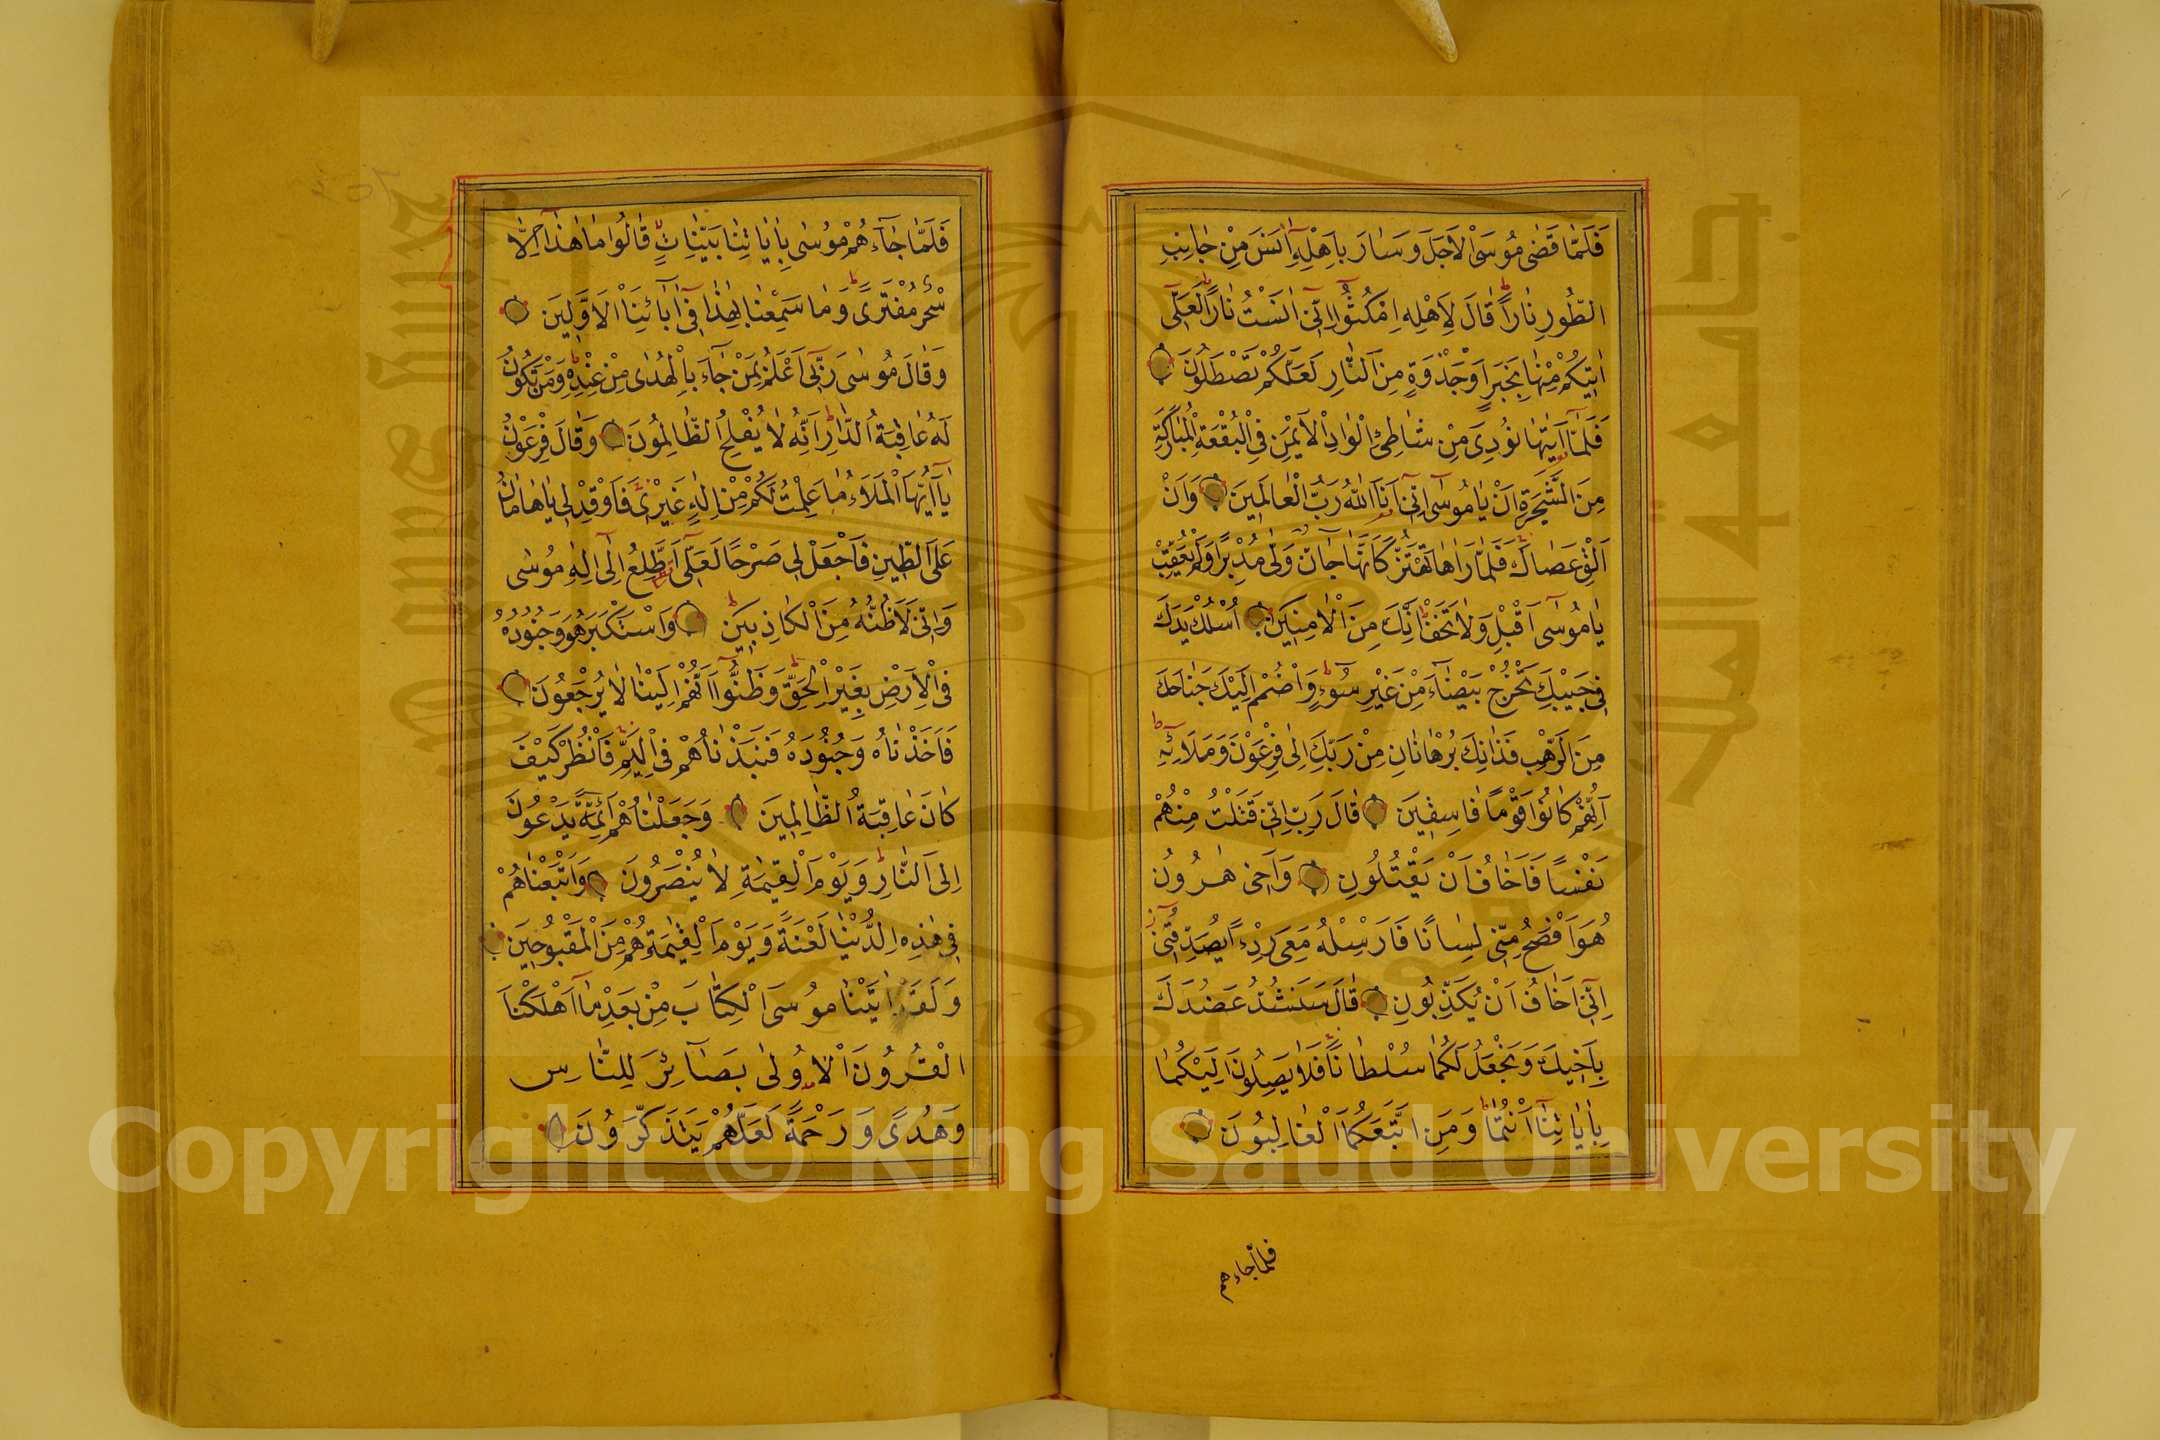 فَلَمَّا قَضٰى مُوسَى الْاَجَلَ وَسَارَ بِاَهْلِهِ اٰنَسَ مِنْ جَانِبِ
الطُّورِ نَارًا قَالَ لِاَهْلِهِ امْكُثُوا اِنّٖى اٰنَسْتُ نَارًا لَعَلّٖى
اٰتٖيكُمْ مِنْهَا بِخَبَرٍ اَوْ جَذْوَةٍ مِنَ النَّارِ لَعَلَّكُمْ تَصْطَلُونَ
فَلَمَّا اَتٰيهَا نُودِىَ مِنْ شَاطِئِ الْوَادِ الْاَيْمَنِ فِى الْبُقْعَةِ الْمُبَارَكَةِ
مِنَ الشَّجَرَةِ اَنْ يَامُوسٰى اِنّٖى اَنَا اللّٰهُ رَبُّ الْعَالَمٖينَ وَاَنْ
اَلْقِ عَصَاكَ فَلَمَّا رَاٰهَا تَهْتَزُّ كَاَنَّهَا جَانٌّ وَلّٰى مُدْبِرًا وَلَمْ يُعَقِّبْ
يَامُوسٰى اَقْبِلْ وَلَا تَخَفْ اِنَّكَ مِنَ الْاٰمِنٖينَ اُسْلُكْ يَدَكَ
فٖى جَيْبِكَ تَخْرُجْ بَيْضَاءَ مِنْ غَيْرِ سُوءٍ وَاضْمُمْ اِلَيْكَ جَنَاحَكَ
مِنَ الرَّهْبِ فَذَانِكَ بُرْهَانَانِ مِنْ رَبِّكَ اِلٰى فِرْعَوْنَ وَمَلَائِهٖ
اِنَّهُمْ كَانُوا قَوْمًا فَاسِقٖينَ قَالَ رَبِّ اِنّٖى قَتَلْتُ مِنْهُمْ
نَفْسًا فَاَخَافُ اَنْ يَقْتُلُونِ وَاَخٖى هٰرُونُ
هُوَ اَفْصَحُ مِنّٖى لِسَانًا فَاَرْسِلْهُ مَعِىَ رِدْءًا يُصَدِّقُنٖى
اِنّٖى اَخَافُ اَنْ يُكَذِّبُونِ قَالَ سَنَشُدُّ عَضُدَكَ
بِاَخٖيكَ وَنَجْعَلُ لَكُمَا سُلْطَانًا فَلَا يَصِلُونَ اِلَيْكُمَا
بِاٰيَاتِنَا اَنْتُمَا وَمَنِ اتَّبَعَكُمَا الْغَالِبُونَ
فلما جاءهم
فَلَمَّا جَاءَهُمْ مُوسٰى بِاٰيَاتِنَا بَيِّنَاتٍ قَالُوا مَا هٰذَا اِلَّا
سِحْرٌ مُفْتَرًى وَمَا سَمِعْنَا بِهٰذَا فٖى اٰبَائِنَا الْاَوَّلٖينَ
وَقَالَ مُوسٰى رَبّٖى اَعْلَمُ بِمَنْ جَاءَ بِالْهُدٰى مِنْ عِنْدِهٖ وَمَنْ تَكُونُ
لَهُ عَاقِبَةُ الدَّارِ اِنَّهُ لَا يُفْلِحُ الظَّالِمُونَ وَقَالَ فِرْعَوْنُ
يَا اَيُّهَا الْمَلَاُ مَا عَلِمْتُ لَكُمْ مِنْ اِلٰهٍ غَيْرٖى فَاَوْقِدْ لٖى يَاهَامَانُ
عَلَى الطّٖينِ فَاجْعَلْ لٖى صَرْحًا لَعَلّٖى اَطَّلِعُ اِلٰى اِلٰهِ مُوسٰى
وَاِنّٖى لَاَظُنُّهُ مِنَ الْكَاذِبٖينَ وَاسْتَكْبَرَ هُوَ وَجُنُودُهُ
فِى الْاَرْضِ بِغَيْرِ الْحَقِّ وَظَنُّوا اَنَّهُمْ اِلَيْنَا لَا يُرْجَعُونَ
فَاَخَذْنَاهُ وَجُنُودَهُ فَنَبَذْنَاهُمْ فِى الْيَمِّ فَانْظُرْ كَيْفَ
كَانَ عَاقِبَةُ الظَّالِمٖينَ وَجَعَلْنَاهُمْ اَئِمَّةً يَدْعُونَ
اِلَى النَّارِ وَيَوْمَ الْقِيٰمَةِ لَا يُنْصَرُونَ وَاَتْبَعْنَاهُمْ
فٖى هٰذِهِ الدُّنْيَا لَعْنَةً وَيَوْمَ الْقِيٰمَةِ هُمْ مِنَ الْمَقْبُوحٖينَ
وَلَقَدْ اٰتَيْنَا مُوسَى الْكِتَابَ مِنْ بَعْدِ مَا اَهْلَكْنَا
الْقُرُونَ الْاُولٰى بَصَائِرَ لِلنَّاسِ
وَهُدًى وَرَحْمَةً لَعَلَّهُمْ يَتَذَكَّرُونَ
Copyright © King Saud University
جامعة الملك
King Saud University
1957